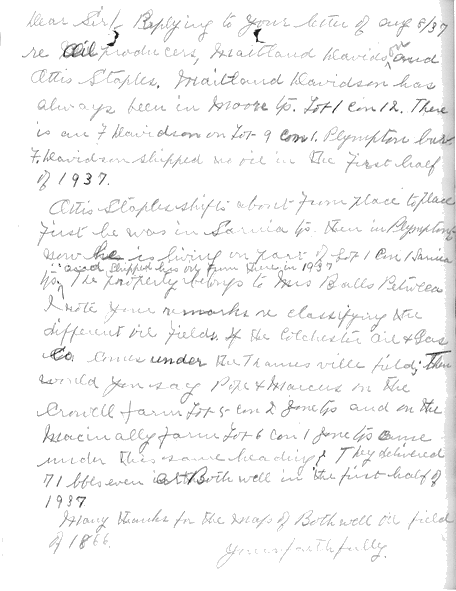 Dear Sir/- Replying to your letter of Aug 8/37
re oil producers, Maitland Davidson and
Ottis Staples. Maitland Davidson has
always been in Moore Tp. Lot 1 Con 12. There
is an F Davidson on Lot 9 con 1. Plympton but
F. Davidson shipped no oil in the first half
of 1937.
Ottis Staples shifts about from place to place
First he was in Sarnia Tp. then in Plympton
now he is living on part of Lot 1 Con 1 Sarnia
and shipped his oil from there in 1937
Tp. The property belongs to Mrs Balls Petrolea
I note your remarks re classifying the
different oil fields. If the Colchester Oil & Gas
Co. comes under the Thamesville field; Then
would you say Pope & Marcus on the
Crowell farm Lot 5 con 2 Zone Tp and on the
farm Lot 6 con 1 Zone Tp came
under this same heading? They delivered
71 bbls even at Bothwell in the first half of
1937
Many thanks for the map of Bothwell oil field
of 1866.
Yours faithfully.